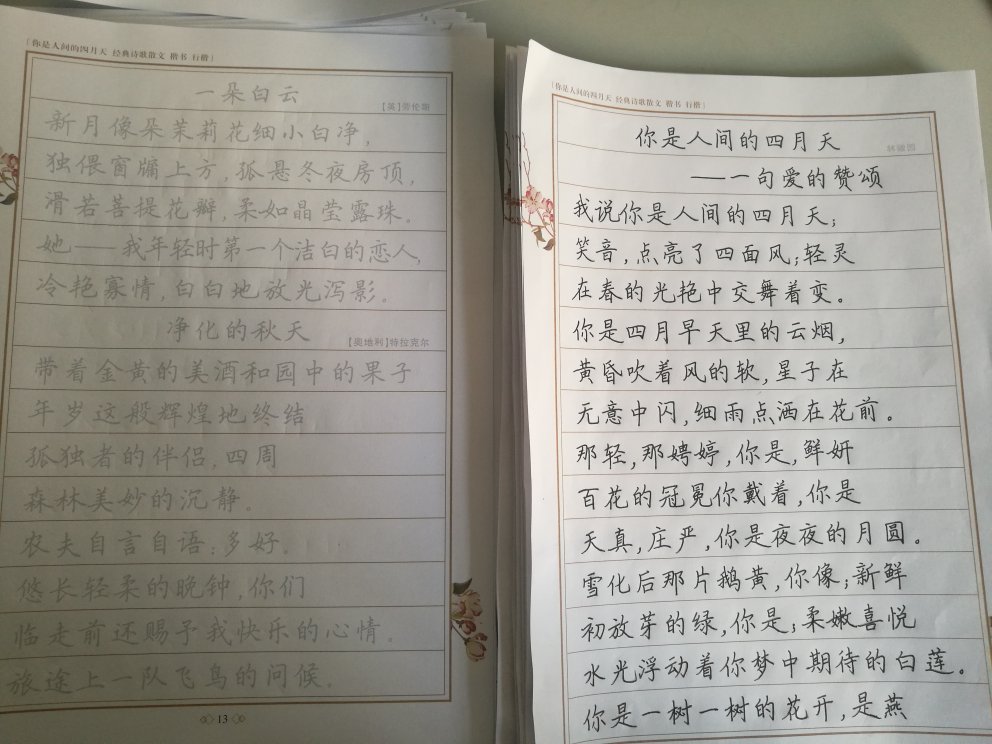 「你是人间的四月天 经典诗歌散文 楷书 行楷」
一朵白云
【英】劳伦斯
新月像朵茉莉花细小白净，
独偎窗牖上方，孤悬冬夜房顶，
滑若菩提花瓣，柔如晶莹露珠。
她——我年轻时第一个洁白的恋人，
冷艳寡情，白白地放光泻影。
净化的秋天
【奥地利】特拉克尔
带着金黄的美酒和园中的果子
年岁这般辉煌地终结
孤独者的伴侣，四周
森林美妙的沉静。
农夫自言自语：多好。
悠长轻柔的晚钟，你们
临走前还赐予我快乐的心情。
旅途上一队飞鸟的问候。
13
「你是人间的四月天 经典诗歌散文 楷书 行楷」
你是人间的四月天
林徽因
——一句爱的赞颂
我说你是人间的四月天；
笑音，点亮了四面风；轻灵
在春的光艳中交舞着变。
你是四月早天里的云烟，
黄昏吹着风的软，星子在
无意中闪，细雨点洒在花前。
那轻，那娉婷，你是，鲜妍
百花的冠冕你戴着，你是
天真，庄严，你是夜夜的月圆。
雪化后那片鹅黄，你像；新鲜
初放芽的绿，你是；柔嫩喜悦
水光浮动着你梦中期待的白莲。
你是一树一树的花开，是燕